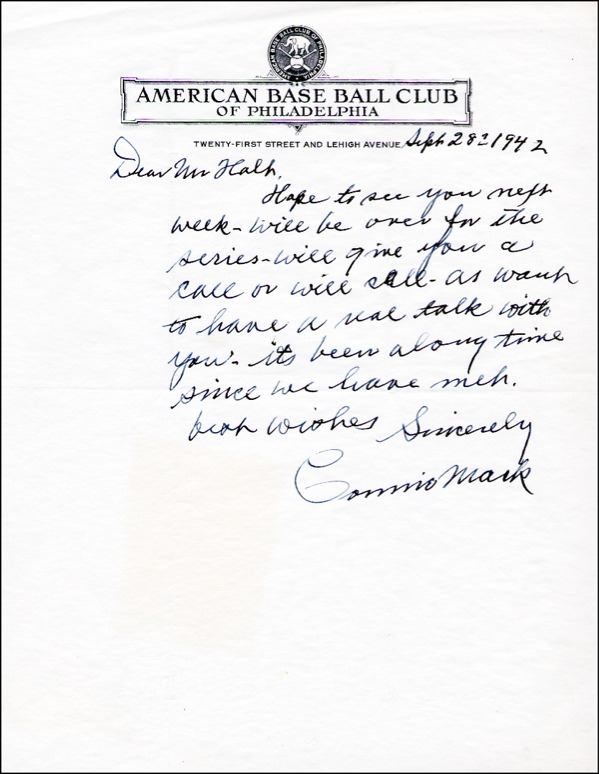 AMERICAN BASE BALL CLUB OF PHILADELPHIA
AMERICAN BASE BALL CLUB
OF PHILADELPHIA
TWENTY-FIRST STREET AND LEHIGH AVENUE Sept 28 1942
Dear Mr
Hope to see you next
week - will be over for the
series - will give you a
call or will call - as want
to have a real talk with
you - its been along time
since we have met.
best wishes Sincerely
Connie Mack